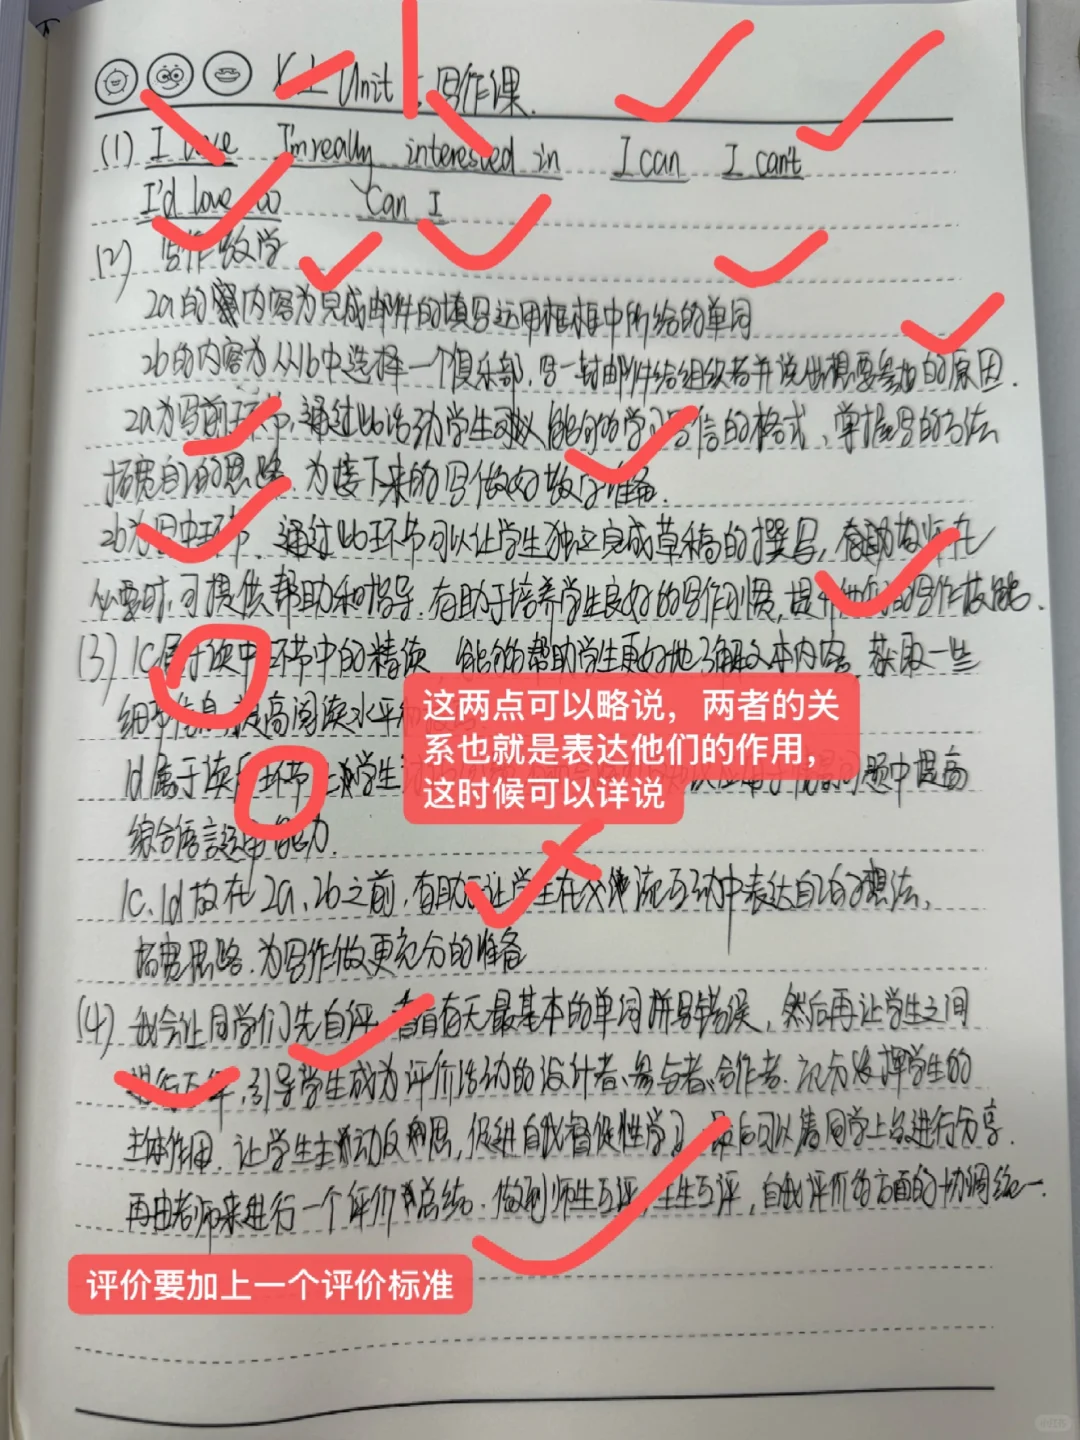 上 Unit 写作课.
(1) I love I'm really interested in I can I can't
I'd love to Can I
(2) 写作教学
2a的内容为完成邮件的填写运用框框中所给的单词
2b的内容为从1b中选择一个俱乐部,写一封邮件给组织者并说出想要参加的原因.
2a为写前环节,通过此活动学生可以能够学习写信的格式、掌握写的方法
拓宽自己的思路,为接下来的写做好准备.
2b为写中环节,通过此环节可以让学生独立完成草稿的撰写,教师在
必要时,可提供帮助和指导,有助于培养学生良好的写作习惯,提升他们的写作技能.
(3) 1c属于读中环节中的精读,能够帮助学生更好地了解文本内容,获取一些
细节信息,提高阅读水平和
这两点可以略说,两者的关
系也就是表达他们的作用,
这时候可以详说
1d属于读后环节 让学生 问题中提高
综合语言运用能力.
1c、1d放在2a、2b之前,有助于让学生在交流互动中表达自己的想法,
拓宽思路,为写作做更充分的准备
(4) 我会让同学们先自评,看有无最基本的单词拼写错误,然后再让学生之间
进行互评,引导学生成为评价活动的设计者、参与者、合作者,充分发挥学生的
主体作用,让学生主动反思,促进自我督促性学习,最后可以请同学上台进行分享.
再由老师来进行一个评价总结.做到师生互评,生生互评,自我评价的方面的协调统一.
评价要加上一个评价标准